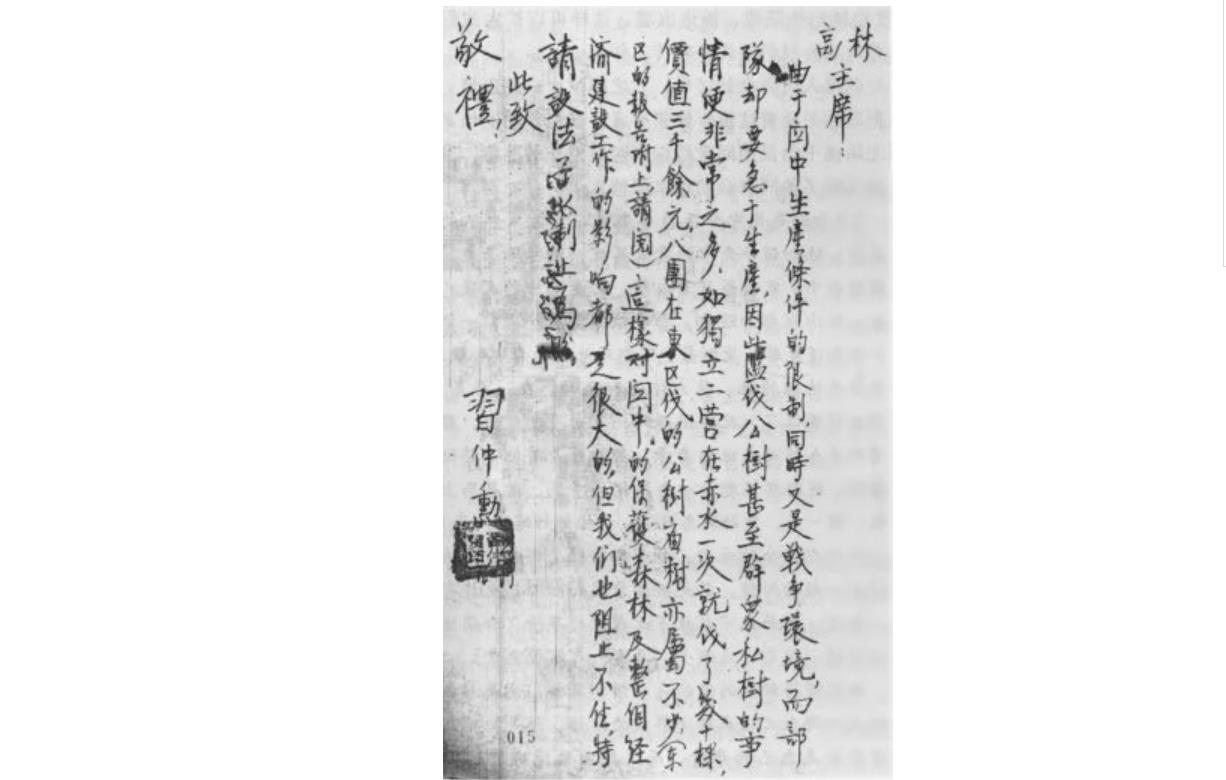 林
高主席：
由于関中生產條件的限制，同時又是戰争環境，而部
隊却要急于生產，因此濫伐公樹甚至群衆私樹的事
情便非常之多，如獨立一营在赤水一次就伐了幾十棵，
價值三千餘元，八團在東区伐的公樹庙樹亦屬不少（東
区的報告附上請阅）這樣对関中的保護森林及整個经
济建設工作的影响都是很大的，但我们也阻止不住，特
請設法
此致
敬禮！
習仲勳
015